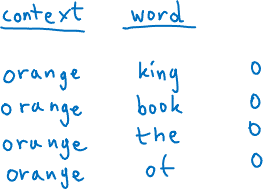 context word
orange king 0
orange book 0
orange the 0
orange of 0